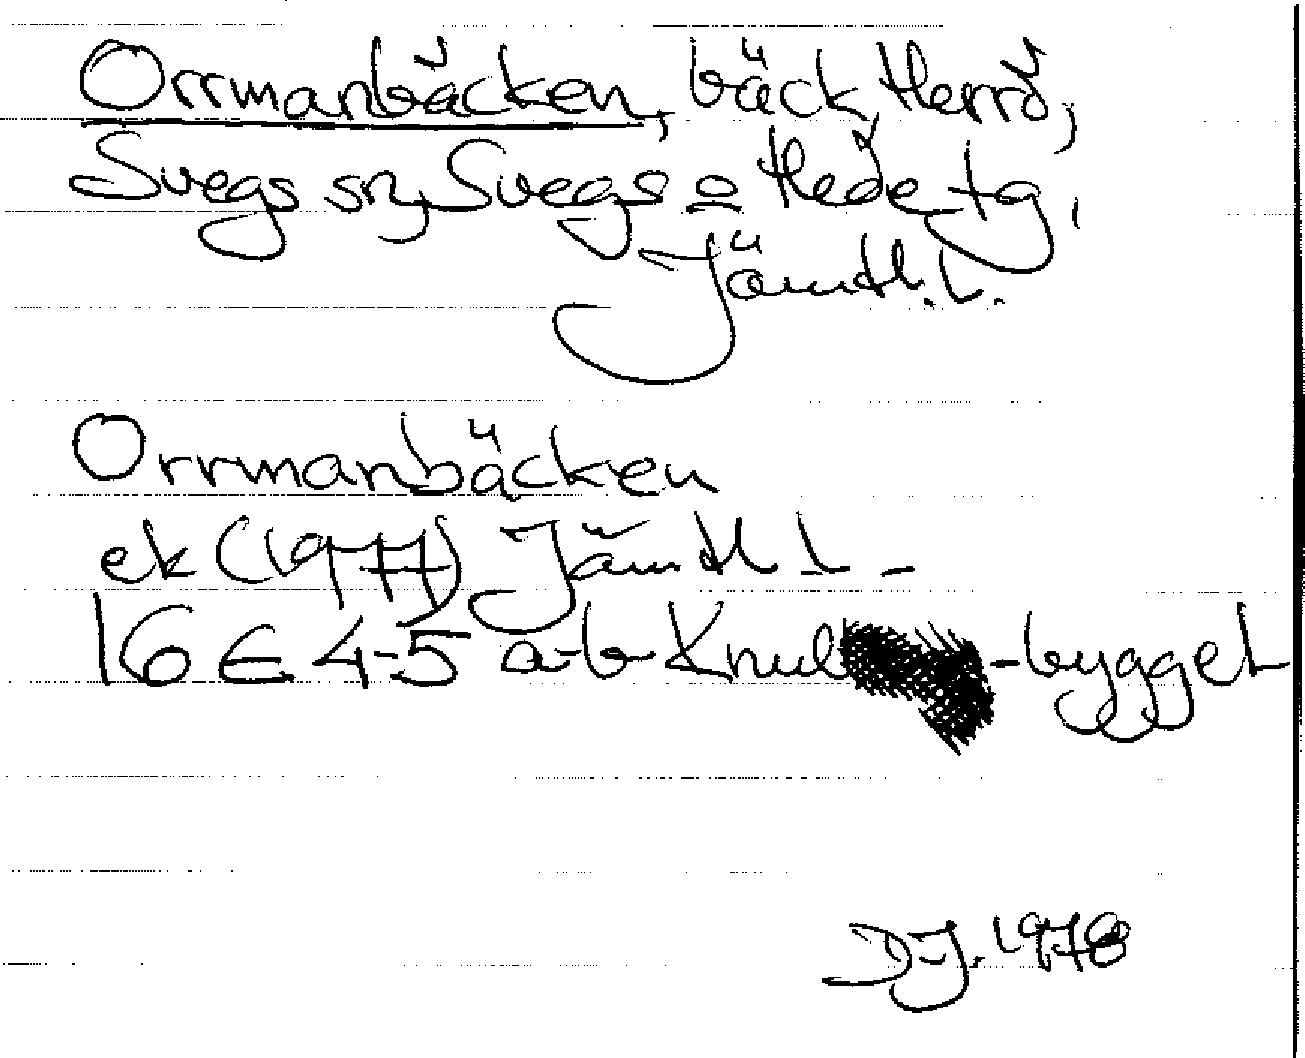 Orrmanbäcken, bäck, Herrö,
Svegs sn, Svegs o Hede tg,
Jämtl. l.
Orrmanbäcken
ek (1977) Jämtl l -
16 E 4-5 a-b Knul -bygget
DJ. 1978